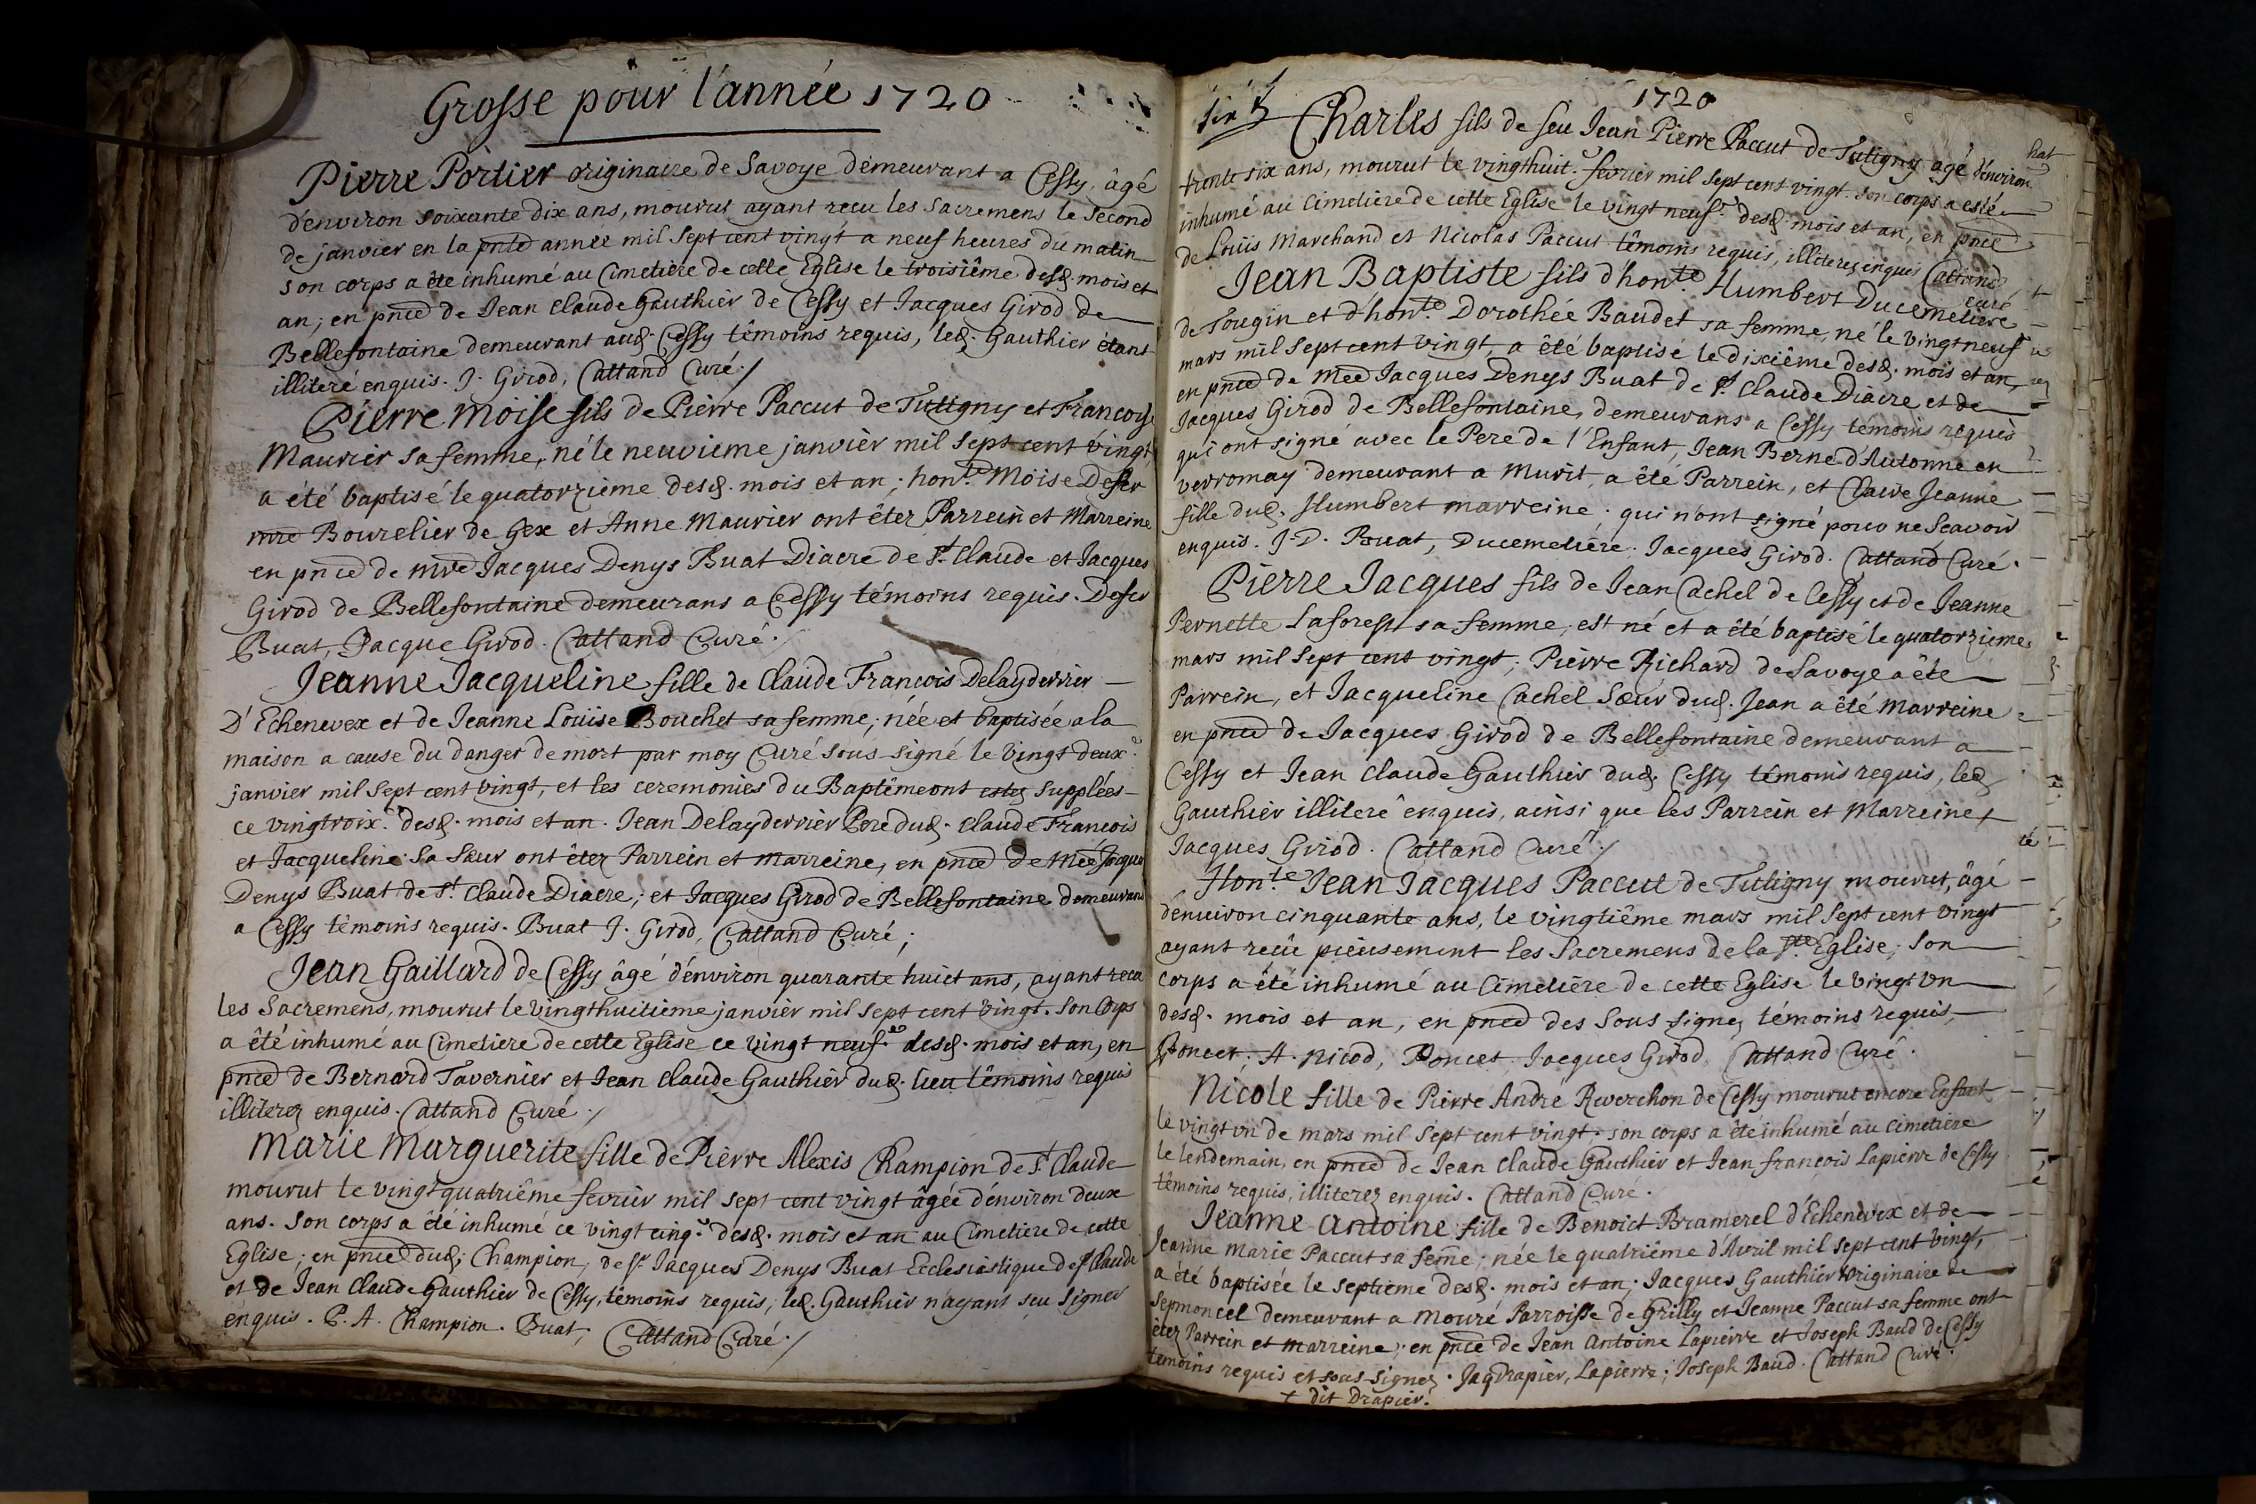 Grosse pour l'année 1720
Pierre Portier originaire de Savoye demeurant a Cessy, âgé
d'environ soixante dix ans, mourut ayant recu les sacremens le second
de janvier en la pnte année mil sept cent vingt a neuf heures du matin
son corps a ête inhumé au Cimetiere de cette Eglise le troisiême desd. mois et
an; en pnce de Jean Claude Gauthier de Cessy et Jacques Girod de
Bellefontaine demeurant aud. Cessy têmoins requis, led. Gauthier étant
illiteré enquis. J. Girod, Cattand Curé./
Pierre Moise fils de Pierre Paccut de Tutigny et Francoise
Maurier sa femme, né le neuvieme janvier mil sept cent vingt
a été baptisé le quatorzieme desd. mois et an; hon.te Moise Defer
mre Bourelier de Gex et Anne Maurier ont êtez Parrein et Marreine
en pnce de mre Jacques Denys Buat Diacre de St. Claude et Jacques
Girod de Bellefontaine demeurans a Cessy témoins requis. Defer
Buat, Jacque Girod. Cattand Curé./
Jeanne Jacqueline fille de Claude François Delayderrier
D'Echenevex et de Jeanne Loüise Bouchet sa femme; née et baptisée a la
maison a cause du danger de mort par moy Curé sous signé le vingt deux.e
janvier mil sept cent vingt, et les ceremonies du Baptême ont estez supplées
ce vingtroix.e desd. mois et an. Jean Delayderrier Pere dud. Claude François
et Jacqueline sa sœur ont êtez Parrein et marreine, en pnce de Mre Jacque
Denys Buat de St. Claude Diacre; et Jacques Girod de Bellefontaine demeurans
a Cessy têmoins requis. Buat J. Girod, Cattand Curé;
Jean Gaillard de Cessy âgé d'environ quarante huict ans, ayant recu
les Sacremens, mourut le vingthuitieme janvier mil sept cent vingt. Son Corps
a été inhumé au Cimetiere de cette Eglise ce vingt neuf.e desd. mois et an, en
pnce de Bernard Tavernier et Jean Claude Gauthier dud. lieu têmoins requis
illiterez enquis. Cattand Curé./
Marie Marguerite fille de Pierre Alexis Champion de St Claude
mourut le vingt quatriême fevrier mil sept cent vingt âgée d'environ deux
ans. Son corps a été inhumé ce vingt cinq.e desd. mois et an au Cimetiere de cette
Eglise; en pnce dud; Champion, de sr. Jacques Denys Buat Ecclesiastique de St Claude
et de Jean Claude Gauthier de Cessy, témoins requis; led. Gauthier n'ayant sçu signer
enquis. P. A. Champion. Buat, Cattand Curé./
1720
Charles fils de feu Jean Pierre Paccut de Tutigny agé d'environ
trente six ans, mourut le vingthuit.e fevrier mil sept cent vingt. son corps a esté
inhumé au Cimetiere de cette Eglise le vingt neuf.e desd. mois et an, en pnce
de Loüis Marchand et Nicolas Paccut têmoins requis, illiterez enquis Cattand
Curé
Jean Baptiste fils d'hon.te Humbert Ducemetiere
de Tougin et d'hon.te Dorothée Baudet sa femme, né le vingtneuf
mars mil sept cent vingt, a été baptisé le dixième desd. mois et an,
en pnce de Mre Jacques Denys Buat de St. Claude Diacre et de
Jacques Girod de Bellefontaine, demeurans a Cessy témoins requis
qui ont signé avec le Pere de l'Enfant, Jean Berne d'Autonne en
verromay demeurant a Murit, a été Parrein, et Claire Jeanne
fille dud. Humbert marreine. qui n'ont signé pour ne sçavoir
enquis. J. D. Buat, Ducemetiére. Jacques Girod. Cattand Curé.
Pierre Jacques fils de Jean Cachel de Cessy et de Jeanne
Pernette Laforest sa femme, est né et a été baptisé le quatorzieme
mars mil sept cent vingt; Pierre Richard de Savoye a été
Parrein, et Jacqueline Cachel Sœur dud. Jean a été Marreine
en pnce de Jacques Girod de Bellefontaine demeurant a
Cessy et Jean Claude Gauthier dud. Cessy têmoins requis, led
Gauthier illiteré enquis, ainsi que les Parrein et Marreine
Jacques Girod. Cattand Curé./
Hon.te Jean Jacques Paccut de Tutigny mourut, âgé
d'enuiron cinquante ans, le vingtiême mars mil sept cent vingt
ayant reçûe pieusement les Sacremens de la ste. Eglise; son
corps a été inhumé au Cimetiére de cette Eglise le vingt un
desd. mois et an, en pnce des Sous signez témoins requis,
Poncet, A. Nicod, Poncet. Jacques Girod. Cattand Curé.
Nicole fille de Pierre André Reverchon de Cessy mourut encore Enfant
le vingt un de mars mil sept cent vingt; son corps a été inhumé au cimetiere
le lendemain, en pnce de Jean Claude Gauthier et Jean françois Lapierre de Cessy
têmoins requis, illiterez enquis. Cattand Curé.
Jeanne Antoine fille de Benoict Bramerel d'Echenevex et de
Jeanne Marie Paccut sa feme; née le quatriême d'Avril mil sept cent vingt,
a été baptisée le septieme desd. mois et an; Jacques Gauthier originaire de
Sepmoncel demeurant a Mouré Parroisse de Grilly et Jeanne Paccut sa femme ont
êtez Parrein et marreine; en pnce de Jean Antoine Lapierre et Joseph Baud de Cessy
temoins requis et sous signez. Jaq Drapier, Lapierre; Joseph Baud. Cattand Curé.
+ dit Drapier.